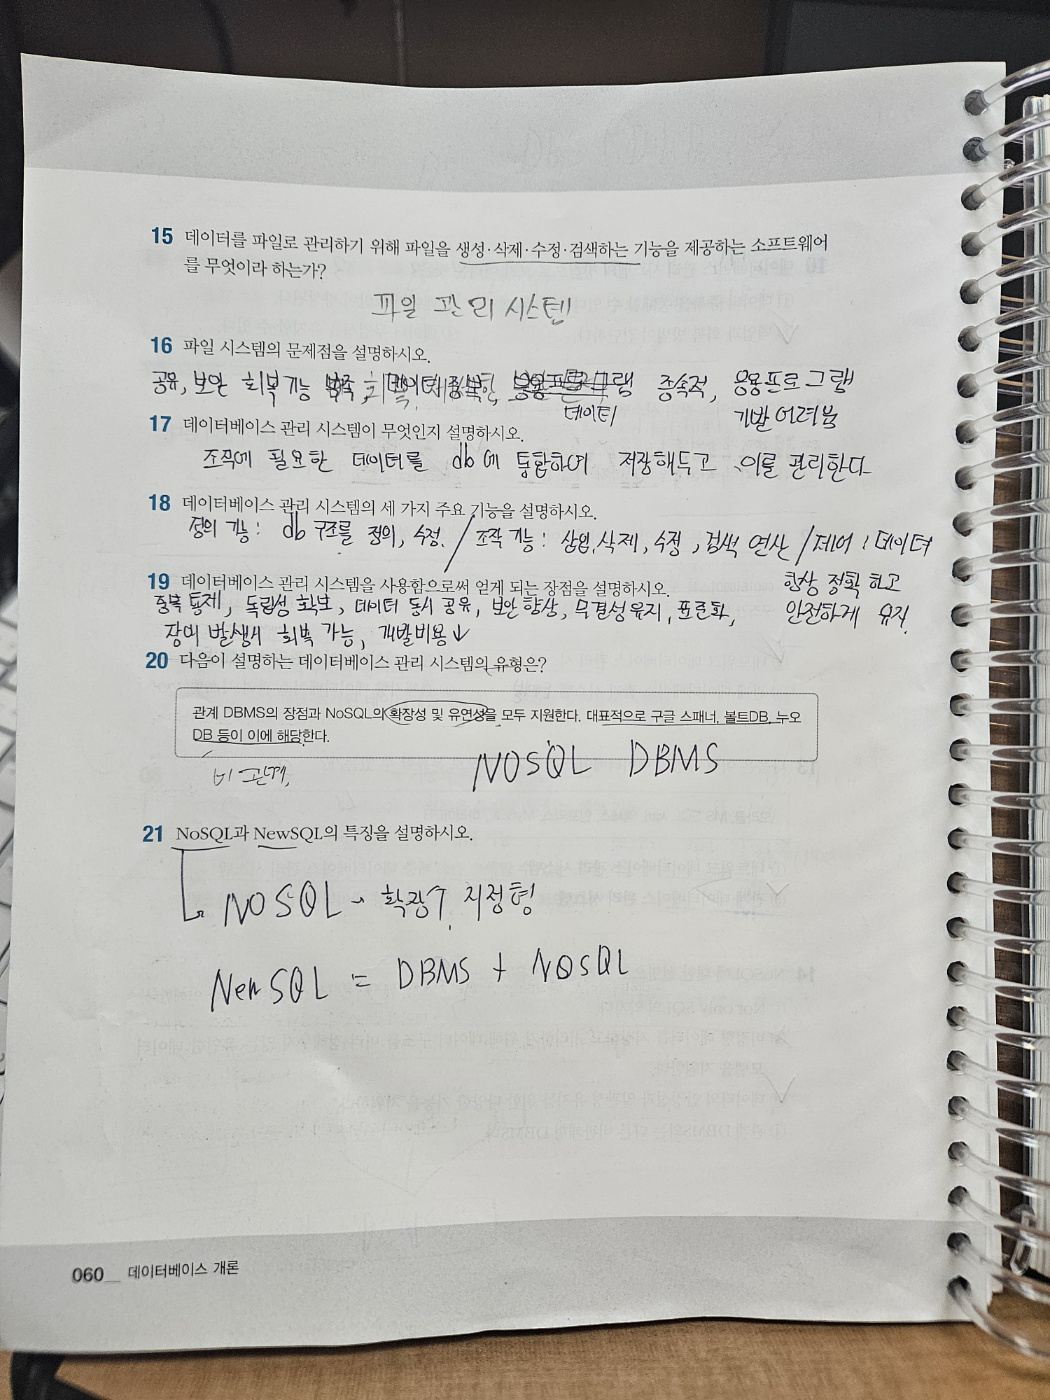 15 데이터를 파일로 관리하기 위해 파일을 생성·삭제·수정·검색하는 기능을 제공하는 소프트웨어
를 무엇이라 하는가?
파일 관리 시스템
16 파일 시스템의 문제점을 설명하시오.
공유, 보안 회복기능 부족, 데이터 중복, 응용프로그램 종속적, 응용프로그램
데이터 개발 어려움
17 데이터베이스 관리 시스템이 무엇인지 설명하시오.
조직에 필요한 데이터를 db에 통합하여 저장해두고 이를 관리한다
18 데이터베이스 관리 시스템의 세 가지 주요 기능을 설명하시오.
정의 기능 : db 구조를 정의, 수정. / 조작 기능 : 삽입, 삭제, 수정, 검색 연산 / 제어 : 데이터
항상 정확하고
19 데이터베이스 관리 시스템을 사용함으로써 얻게 되는 장점을 설명하시오.
중복 통제, 독립성 확보, 데이터 동시 공유, 보안 향상, 무결성 유지, 표준화, 안전하게 유지.
장애 발생시 회복 가능, 개발비용↓
20 다음이 설명하는 데이터베이스 관리 시스템의 유형은?
관계 DBMS의 장점과 NoSQL의 확장성 및 유연성을 모두 지원한다. 대표적으로 구글 스패너, 볼트DB, 누오
DB 등이 이에 해당한다.
비 관계, NOSQL DBMS
21 NoSQL과 NewSQL의 특징을 설명하시오.
NOSQL - 확장↑
NewSQL = DBMS + NOSQL
060_ 데이터베이스 개론